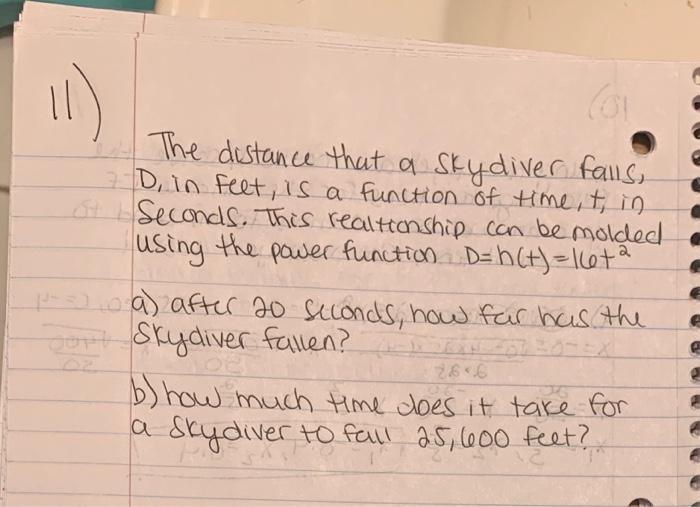 11)
The distance that a skydiver falls,
D, in feet, is a function of time, t, in
Seconds. This realtionship can be molded
using the power function D=h(t)=16t²
a) after 20 seconds, how far has the
Skydiver fallen?
b) how much time does it take for
a skydiver to fall 25,600 feet?